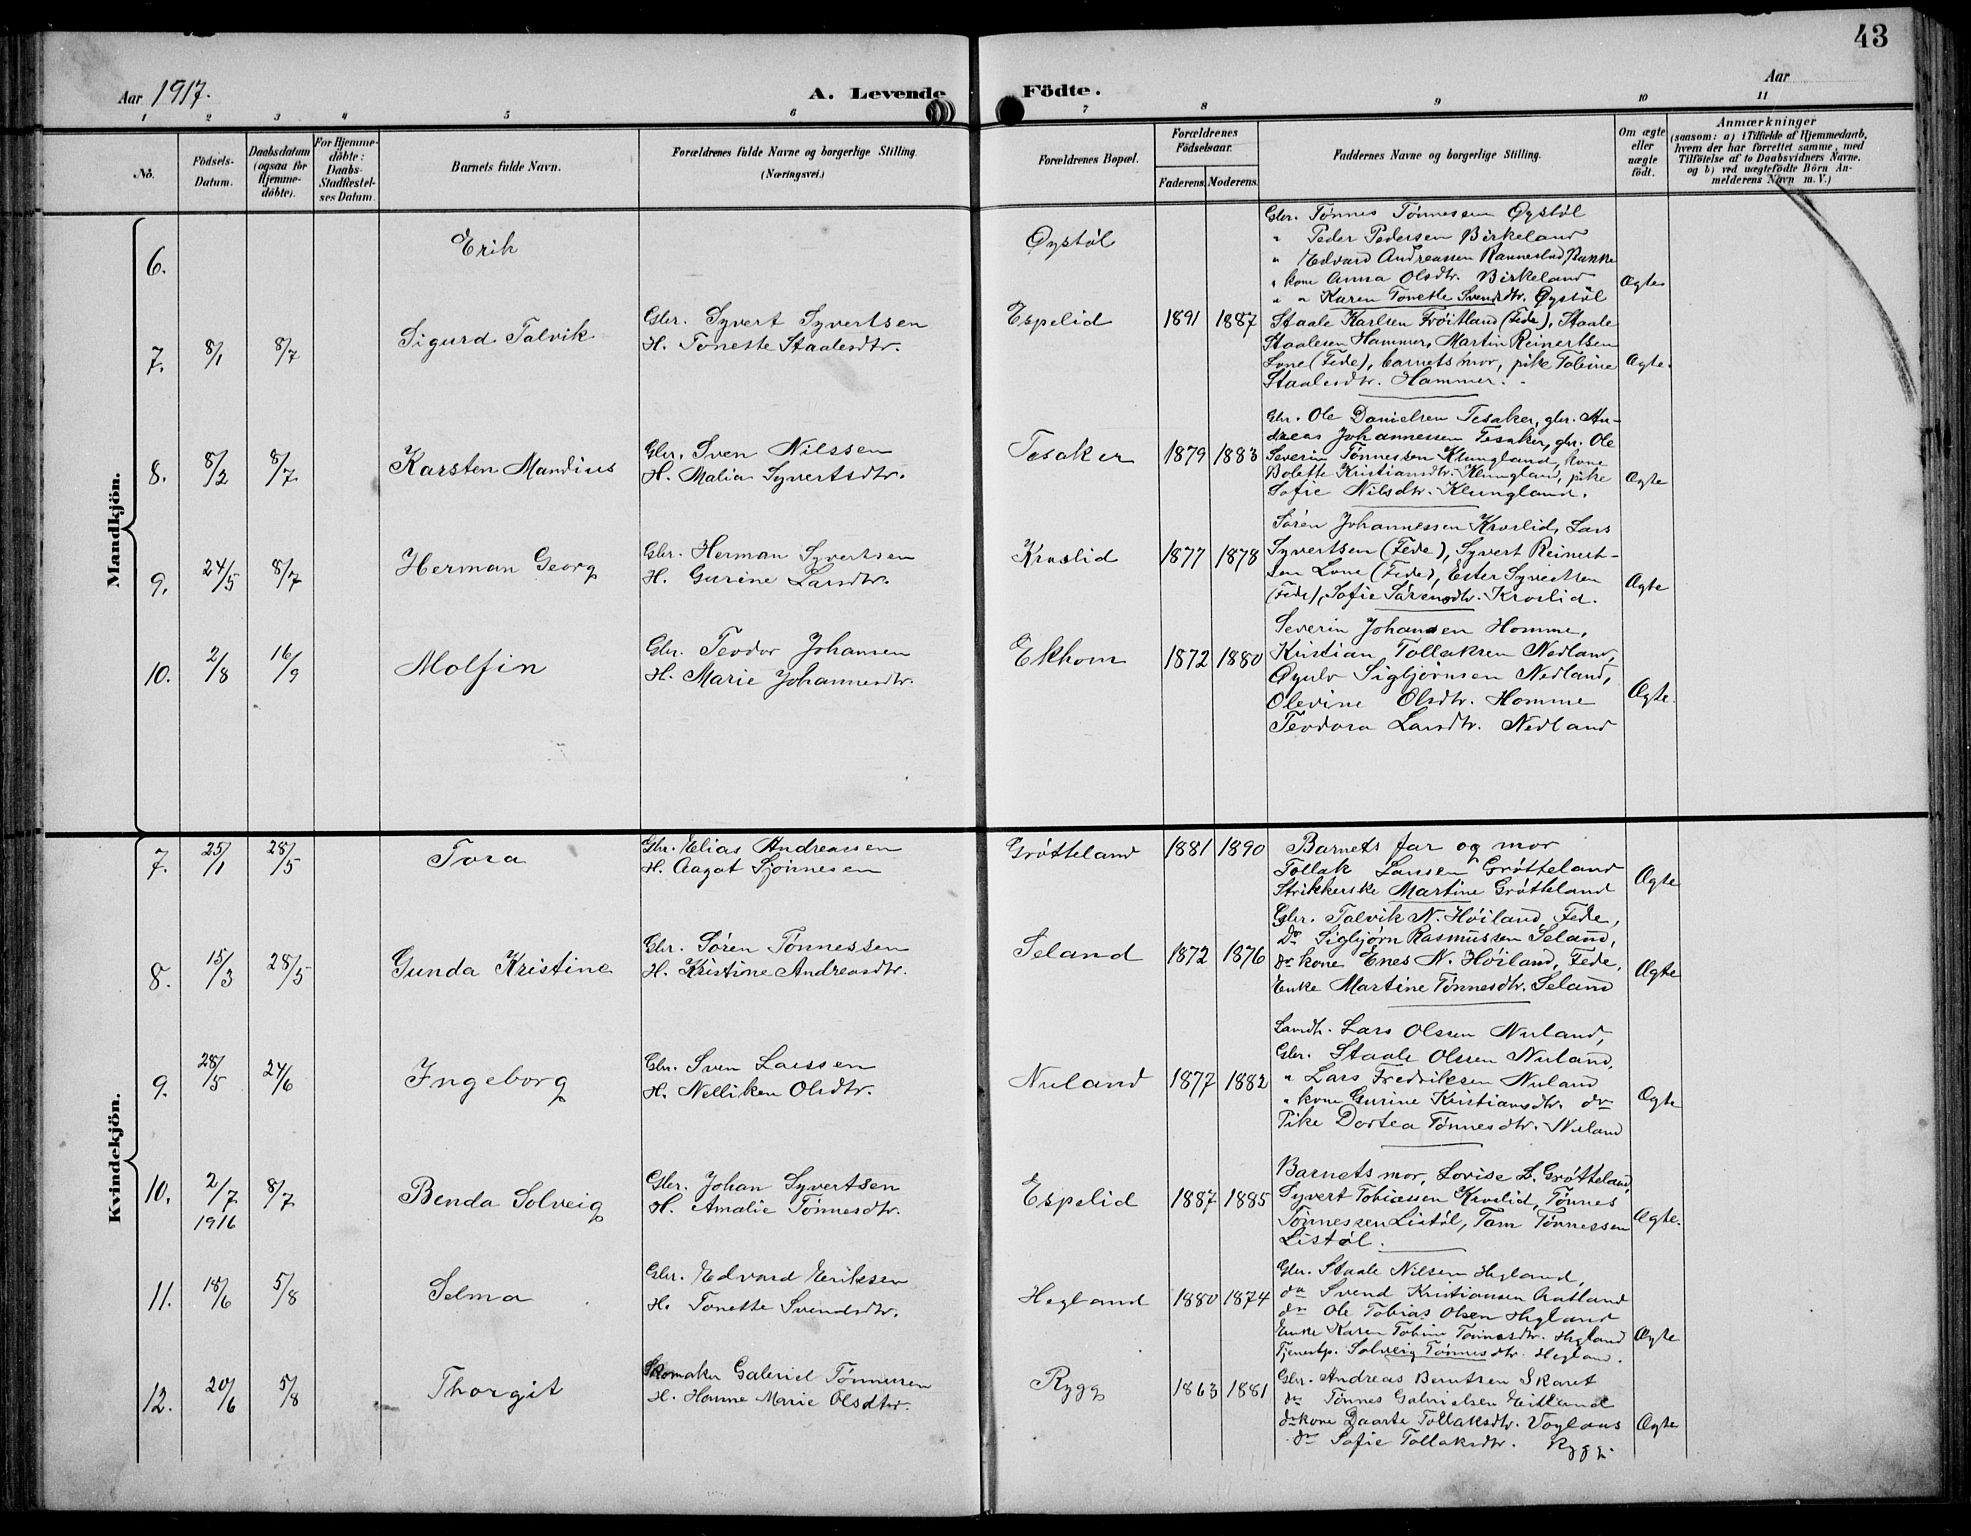 43
Aar 1917.
A. Levende
Födte.
Aar
1 2 3 4 5 6 7 8 9 10 11
No.
Födsels-
Datum.
Daabsdatum
(ogsaa for
Hjemme-
döbte).
For Hjemme-
döbte:
Daabs-
Stadfæstel-
ses Datum.
Barnets fulde Navn.
Forældrenes fulde Navne og borgerlige Stilling.
(Næringsvei.)
Forældrenes Bopæl.
Forældrenes
Födselsaar.
Faderens. Moderens.
Faddernes Navne og borgerlige Stilling.
Om ægte
eller
uægte
födt.
Anmærkninger
(saasom: a) i Tilfælde af Hjemmedaab,
hvem der har forrettet samme, med
Tilföielse af to Daabsvidners Navne,
og b) ved uægtefödte Börn An-
melderens Navn m. V.)
Mandkjön.
6. Erik Øystöl
Gbr. Tönnes Tönnessen Øystöl
" Peder Pedersen Birkeland
" Edvard Andreassen Rannestad,
" kone Anna Olsdtr. Birkeland
" " Karen Tonette Svendsdtr. Øystöl
Ægte
7. 8/1 8/7 Sigurd Talvik
Gbr. Syvert Syvertsen
H. Tonette Staalesdtr.
Espelid 1891 1887
Staale Karlsen Fröitland (Fede), Staale
Staalesen Hammer, Martin Reinertsen
Lone (Fede), barnets mor, pike Tobine
Staalesdtr. Hammer.
Ægte.
8. 8/2 8/7 Karsten Mandius
Gbr. Sven Nilssen
H. Malia Syvertsdtr.
Tesaker 1879 1883
Gbr. Ole Danielsen Tesaker, gbr. An-
dreas Johannessen Tesaker, gbr. Ole
Severin Tönnessen Klungland, kone
Bolette Kristiansdtr. Klungland, pike
Sofie Nilsdtr. Klungland.
Ægte
9. 24/5 8/7 Herman Georg
Gbr. Herman Syvertsen
H. Gurine Larsdtr.
Kroslid 1877 1878
Sören Johannessen Kroslid, Lars
Syvertsen (Fede), Syvert Reinert-
sen Lone (Fede), Ester Syvertsen
(Fede), Sofie Sörensdtr. Kroslid.
Ægte
10. 2/8 16/9 Molfin
Gbr. Teodor Johansen
H. Marie Johannesdtr.
Ekhom 1872 1880
Severin Johansen Homme,
Kristian Tollaksen Nedland,
Øyulv Sigbjörnsen Nedland,
Olevine Olsdtr. Homme
Teodora Larsdtr. Nedland
Ægte.
Kvindekjön.
7. 25/1 28/5 Tora
Gbr. Elias Andreassen
H. Aagot Sjönnesen
Grötteland 1881 1890
Barnets far og mor
Tollak Larsen Grötteland
Strikkerske Martine Grötteland
Ægte
8. 15/3 28/5 Gunda Kristine
Gbr. Sören Tönnessen
H. Kristine Andreasdtr.
Seland 1872 1876
Gbr. Talvik N. Höiland, Fede,
Do Sigbjørn Rasmussen Seland,
do kone Enes N. Höiland, Fede,
Enke Martine Tönnesdtr. Seland
Ægte
9. 28/5 24/6 Ingeborg
Gbr. Sven Larssen
H. Nelliken Olsdtr.
Nuland 1877 1882
Lars Olsen Nuland,
Gbr. Staale Olssen Nuland,
" Lars Fredriksen Nuland
" kone Gurine Kristiansdtr. do
Pike Dortea Tönnesdtr. Nuland
Ægte
10. 2/7 1916 8/7 Benda Solveig
Gbr. Johan Syvertsen
H. Amalie Tönnesdtr.
Espelid 1887 1885
Barnets mor, Lovise L. Grötteland,
Syvert Tobiassen Kroslid, Tönnes
Tönnessen Listöl, Tam Tönnessen
Listöl.
Ægte.
11. 18/6 5/8 Selma
Gbr. Edvard Eriksen
H. Tonette Svendsdtr.
Hegland 1880 1874
Gbr. Staale Nilsen Hegland,
do Svend Kristiansen
do Ole Tobias Olsen Hegland
Enke Karen Tobine Tönnesdtr. Hegland
Tjenestp. Solveig Tönnesdtr. Hegland.
Ægte
12. 20/6 5/8 Thorgit
Skomaker Gabriel Tönnessen
H. Hanne Marie Olsdtr.
Rygg 1863 1881
Gbr. Andreas Berntsen Skaret
do Tönnes Gabrielsen Eitland
do kone Daarte Tollaksdtr. Voglaus
do Sofie Tollaksdtr. Rygg.
Ægte